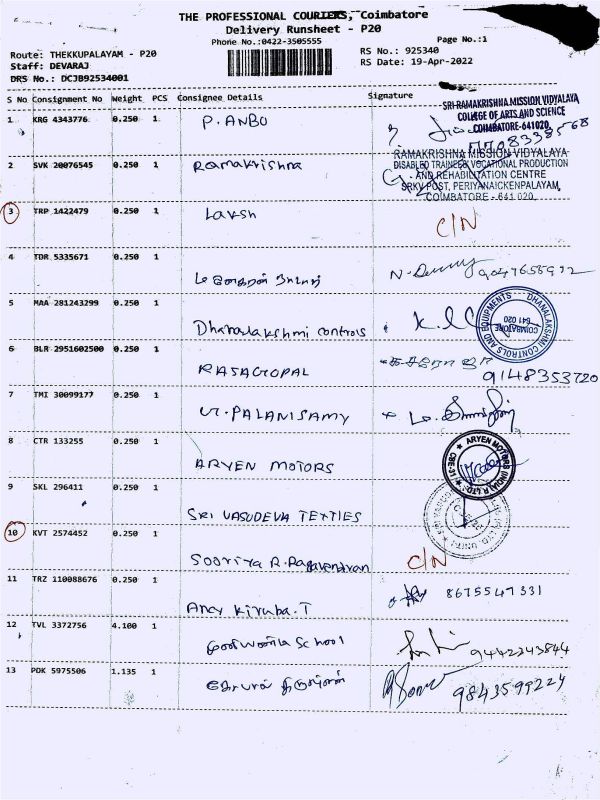 THE PROFESSIONAL COURIERS, Coimbatore
Delivery Runsheet - P20
Phone No.:0422-3505555
Page No.:1
Route: THEKKUPALAYAM - P20
RS No.: 925340
Staff: DEVARAJ
RS Date: 19-Apr-2022
DRS No.: DCJB92534001
S No Consignment No Weight PCS Consignee Details Signature
SRI RAMAKRISHNA MISSION VIDYALAYA
COLLEGE OF ARTS AND SCIENCE
COIMBATORE-641020
1 KRG 4343776 0.250 1 P. ANBU
7708338568
RAMAKRISHNA MISSION VIDYALAYA
DISABLED TRAINEES VOCATIONAL PRODUCTION
AND REHABILITATION CENTRE
SRKV POST, PERIYANAICKENPALAYAM,
COIMBATORE - 641 020.
2 SVK 20076545 0.250 1 Ramakrishna
3 TRP 1422479 0.250 1 Laksh C/N
4 TDR 5335671 0.250 1
5 MAA 281243299 0.250 1 Dhanalakshmi controls
DHANALAKSHMI CONTROLS AND EQUIPMENTS
COIMBATORE
641 020
6 BLR 2951602500 0.250 1 RAJAGOPAL 9148353720
7 TMI 30099177 0.250 1 PALANISAMY
8 CTR 133255 0.250 1 ARYEN MOTORS
ARYEN MOTORS (INDIA) P LTD
CBE-31
9 SKL 296411 0.250 1 SRI VASUDEVA TEXTIES
10 KVT 2574452 0.250 1 Sooriya R. Ragavendran C/N
11 TRZ 110088676 0.250 1 Ancy Kiruba. T 8675547331
12 TVL 3372756 4.100 1 School 9442243844
13 PDK 5975506 1.135 1 9843599224